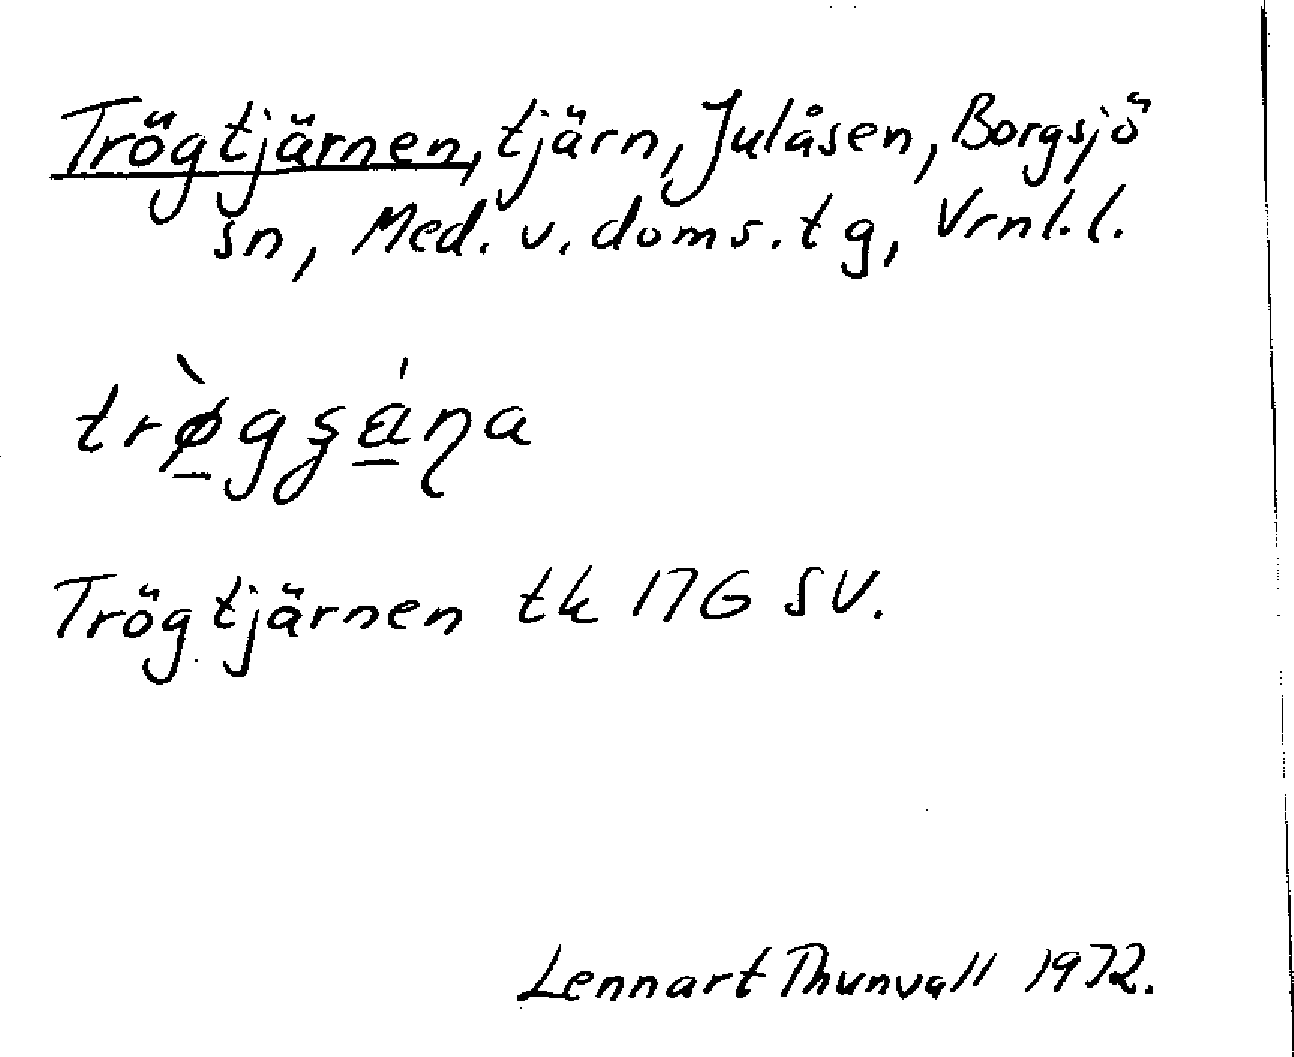 Trögtjärnen, tjärn, Julåsen, Borgsjö
sn, Med. v. doms. tg, Vrnl. l.
trø̲̀gʂá̲ɳa
Trögtjärnen tk 17G SV.
Lennart Thunvall 1972.